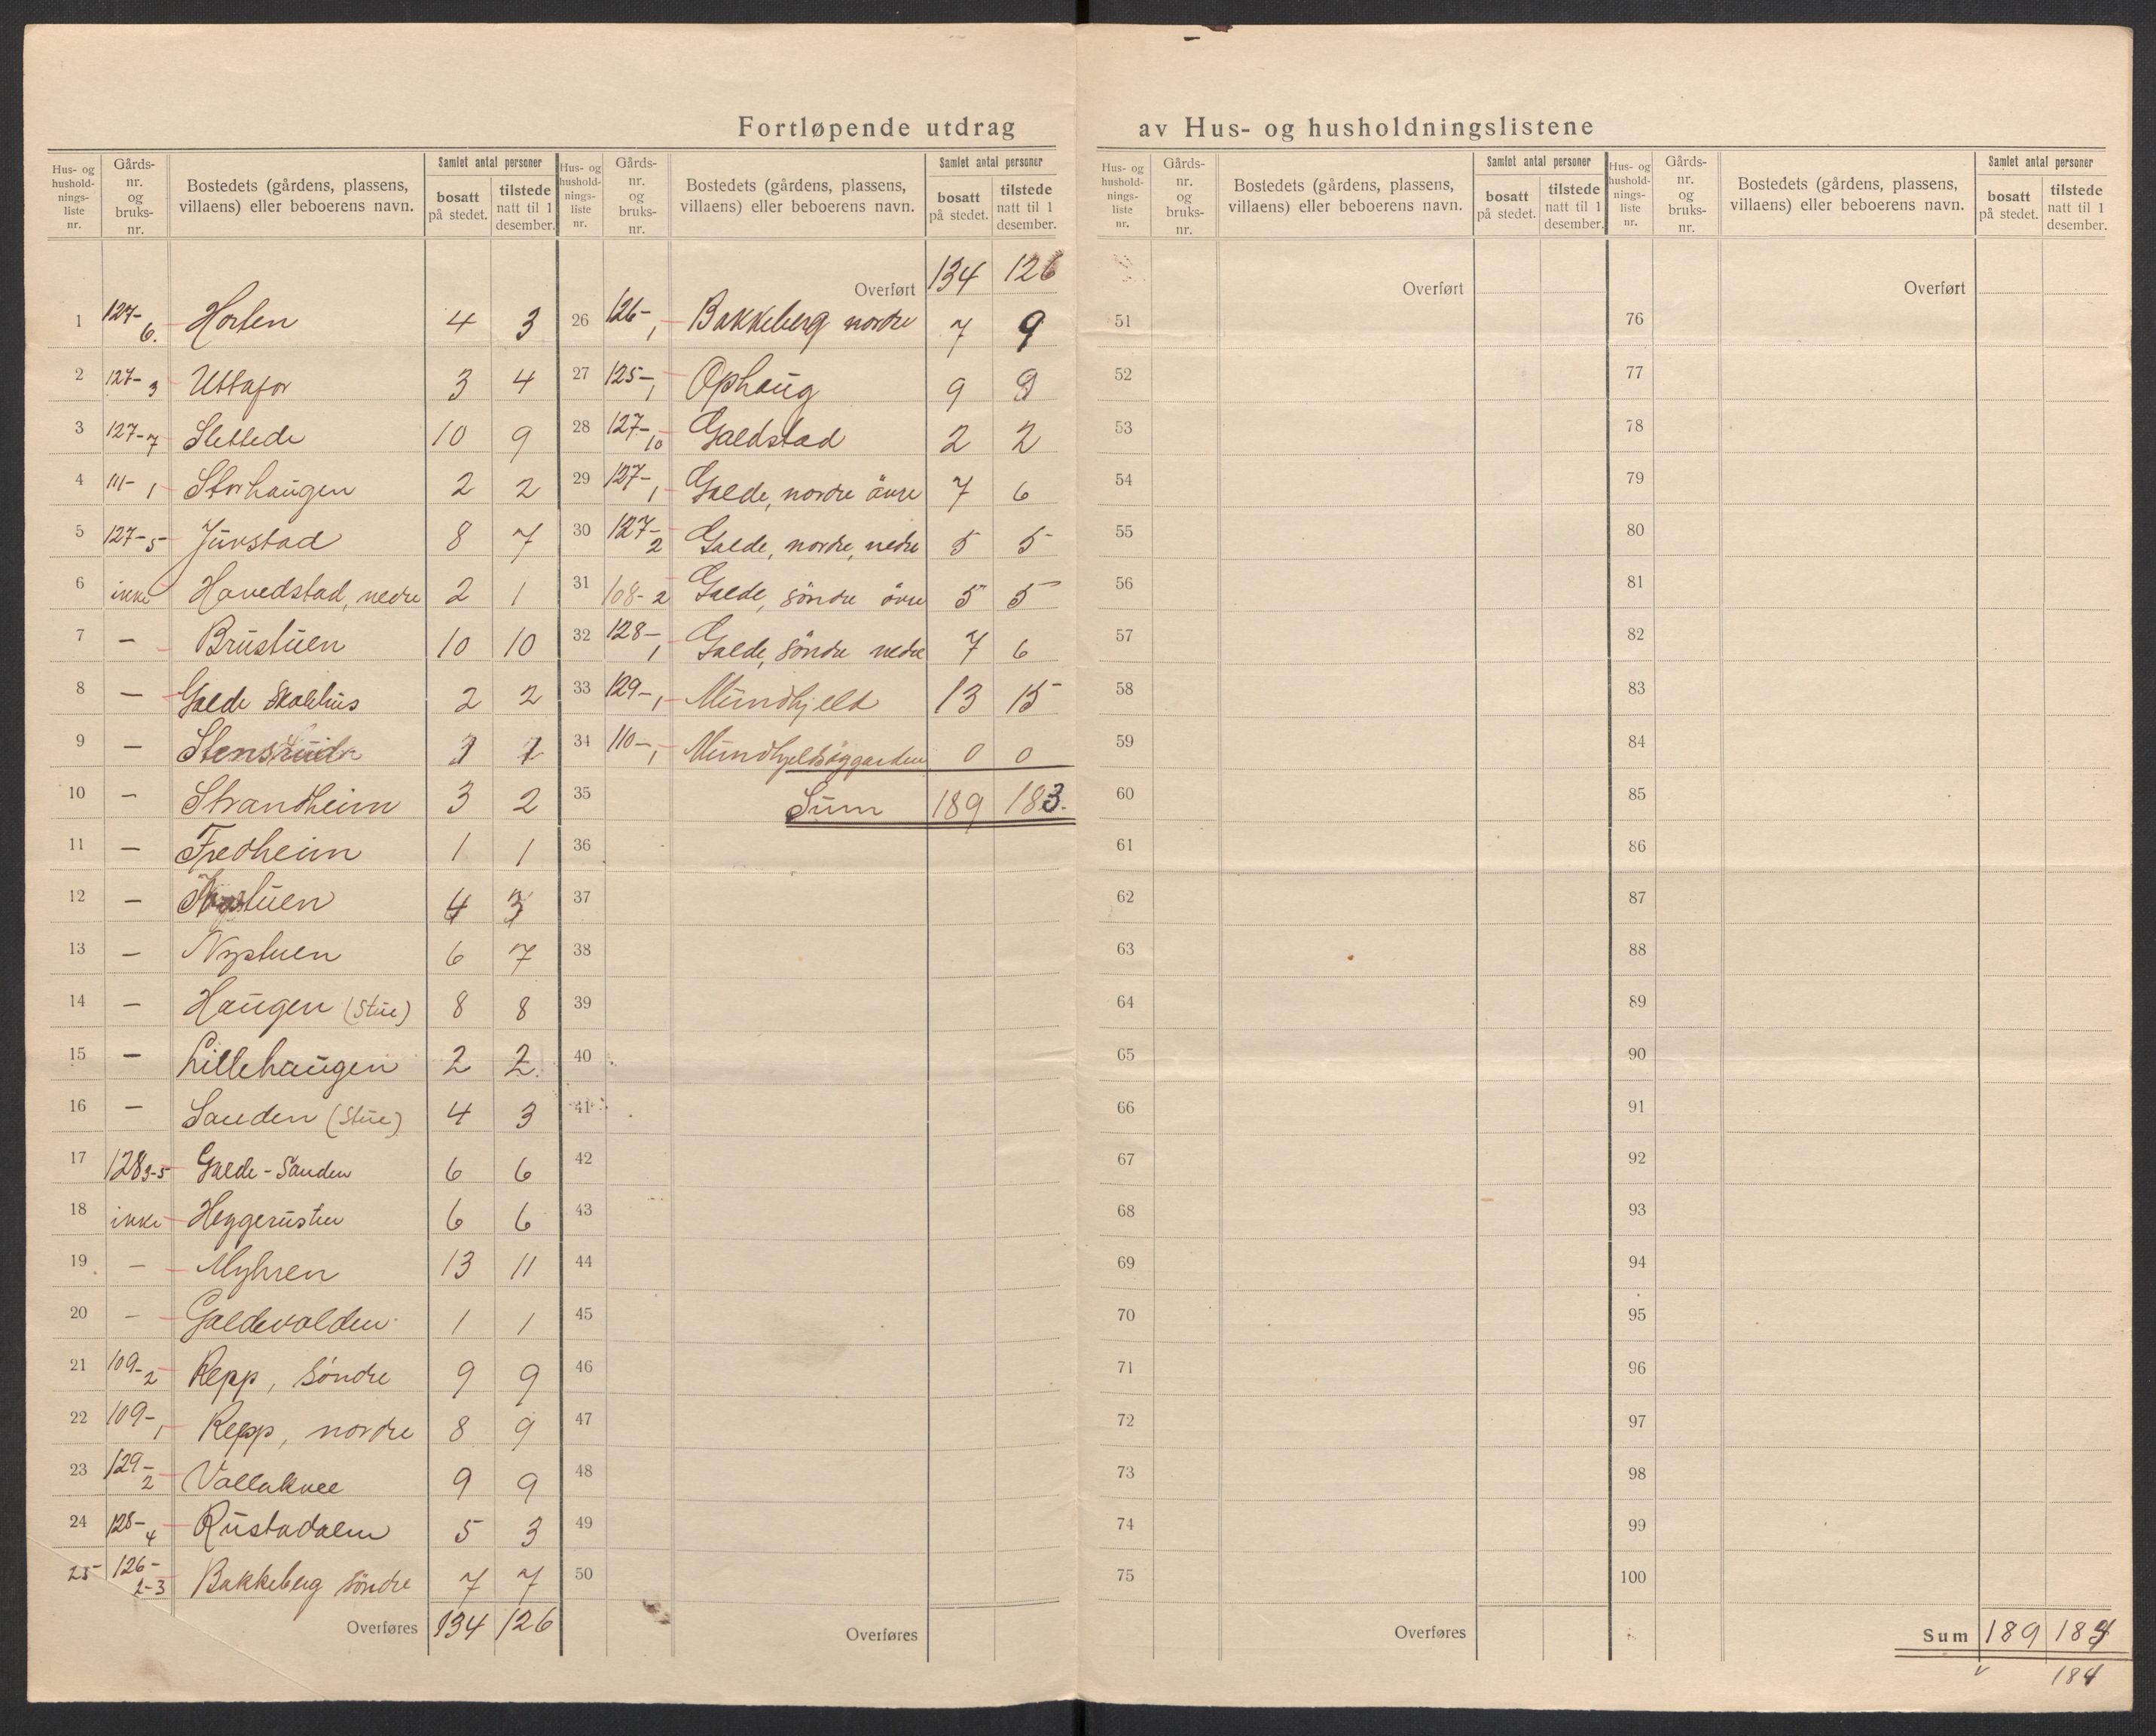 Fortløpende utdrag av Hus- og husholdningslistene
Hus- og hushold-nings-liste nr. Gårds-nr. og bruks-nr. Bostedets (gårdens, plassens, villaens) eller beboerens navn. Samlet antal personer bosatt på stedet. tilstede natt til 1 desember.
1 127-6. Horten 4 3
2 127-3 Uttafor 3 4
3 127-7 Slettede 10 9
4 111-1 Storhaugen 2 2
5 127-5 Juvstad 8 7
6 ikke Havedstad, nedre 2 1
7 — Brustuen 10 10
8 — Galde Skolehus 2 2
9 — 1 1
10 — Strandheim 3 2
11 — Fredheim 1 1
12 — 4 3
13 — Nystuen 6 7
14 — Haugen (Stue) 8 8
15 — Lillehaugen 2 2.
16 — Sanden (Stue) 4 3
17 128 3-5 Galde-Sanden 6 6
18 ikke Heggerusten 6 6
19 — Myhren 13 11
20 — Galdevolden 1 1
21 109-2 Repp, söndre 9 9
22 109-1 Repp, nordre 8 9
23 129-2 9 9
24 128-4 Rustadalen 5 3
25 126-2-3 Bakkeberg söndre 7 7
Overføres 134 126
Hus- og hushold-nings-liste nr. Gårds-nr. og bruks-nr. Bostedets (gårdens, plassens, villaens) eller beboerens navn. Samlet antal personer bosatt på stedet. tilstede natt til 1 desember.
Overført 134 126
26 126-1 Bakkeberg nordre 7 9
27 125-1 Ophaug 9 9
28 127-10 Galdstad 2 2
29 127-1 Galde, nordre övre 7 6
30 127-2 Galde, nordre, nedre 5 5
31 108-2 Galde, söndre övre 5 5
32 128-1 Galde, söndre nedre 7 6
33 129-1 Mundhjeld 13 15
34 110-1 0 0
35 Sum 189 183.
36
37
38
39
40
41
42
43
44
45
46
47
48
49
50
Overføres
Hus- og hushold-nings-liste nr. Gårds-nr. og bruks-nr. Bostedets (gårdens, plassens, villaens) eller beboerens navn. Samlet antal personer bosatt på stedet. tilstede natt til 1 desember.
Overført
51
52
53
54
55
56
57
58
59
60
61
62
63
64
65
66
67
68
69
70
71
72
73
74
75
Overføres
Hus- og hushold-nings-liste nr. Gårds-nr. og bruks-nr. Bostedets (gårdens, plassens, villaens) eller beboerens navn. Samlet antal personer bosatt på stedet. tilstede natt til 1 desember.
Overført
76
77
78
79
80
81
82
83
84
85
86
87
88
89
90
91
92
93
94
95
96
97
98
99
100
Sum 189
184